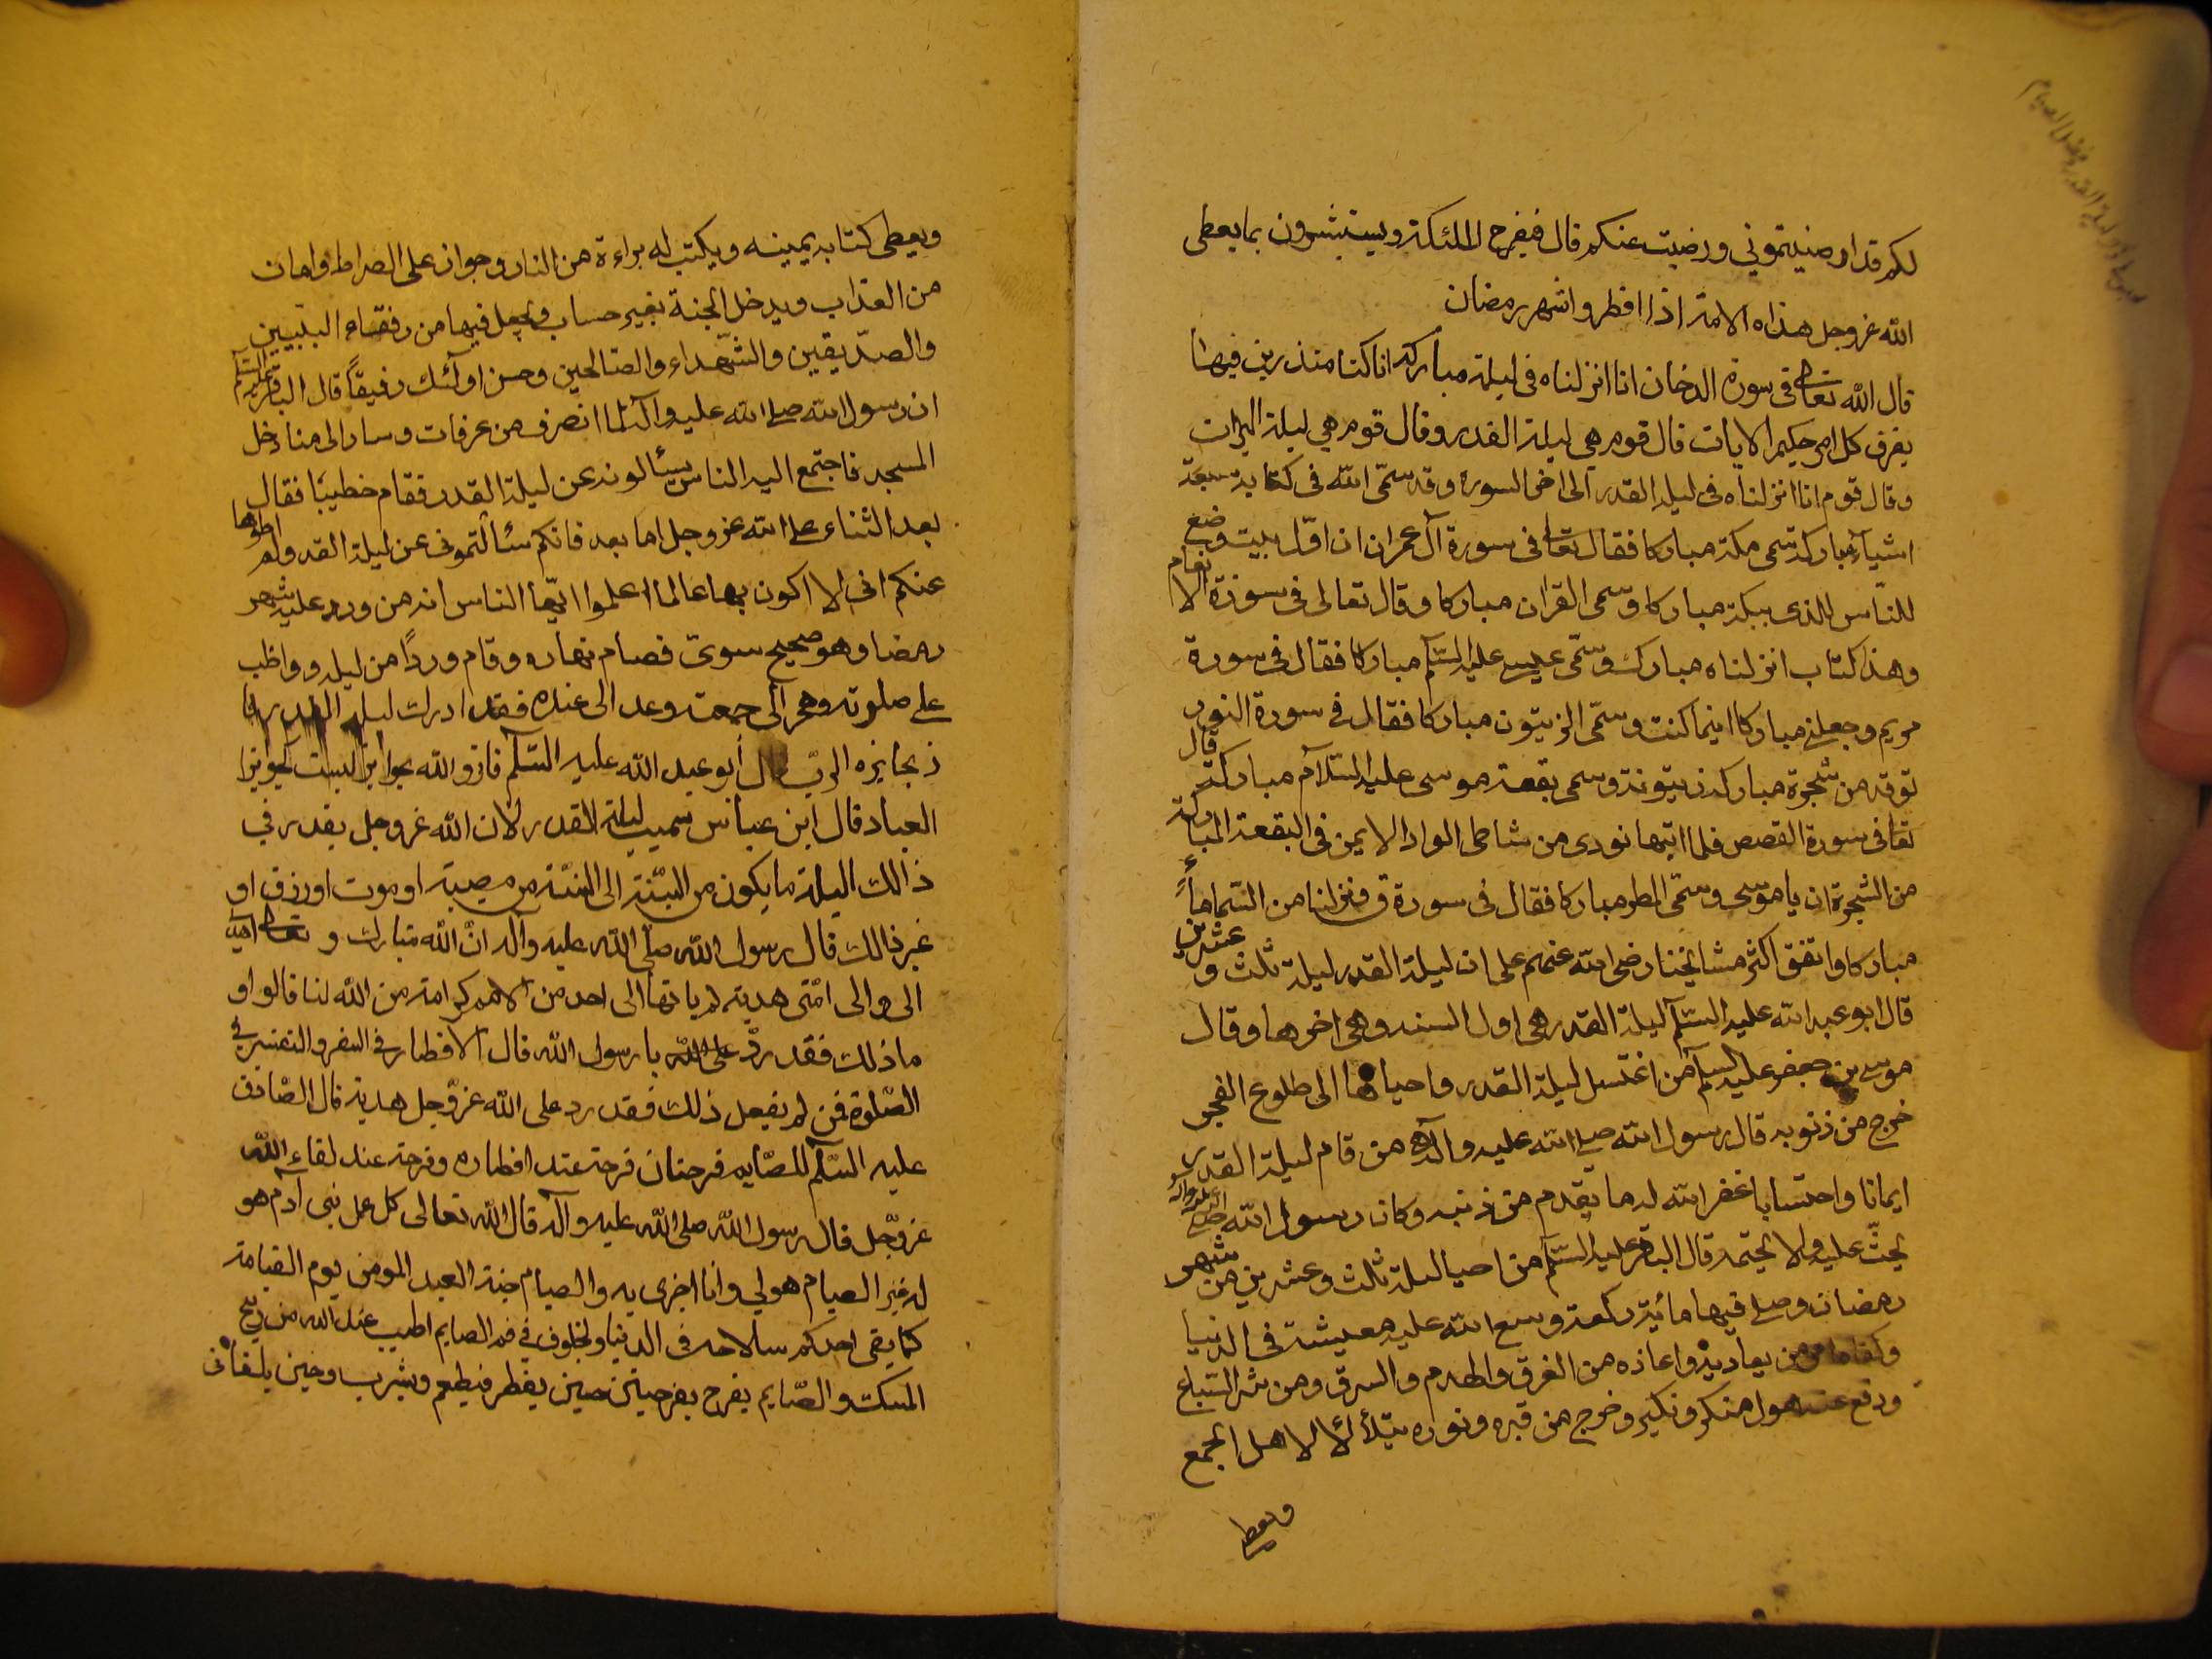 لكم قد ارضيتموني ورضيت عنكم قال فيفرح الملئكة ويستبشرون بما يعطى
الله عز وجل هذه الامة اذا افطروا شهر رمضان
قال الله تعالى في سورة الدخان انا انزلناه في ليلة مباركة انا كنا منذرين فيها
يفرق كل امر حكيم الايات قال قوم هي ليلة القدر وقال قوم هي ليلة البرات
وقال قوم انا انزلناه في ليلة القدر الى اخر السورة وقد سمّى الله في كتابه سبعة
اشياء مباركة سمى مكة مباركا فقال تعالى في سورة آل عمران ان اوّل بيت وضع
للنّاس للذى ببكة مباركا وسمى القران مباركا وقال تعالى في سورة الانعام
وهذا كتاب انزلناه مبارك وسمّى عيسى عليه السّلم مباركا فقال في سورة
مريم وجعلني مباركا اينما كنت وسمّى الزيتون مباركا فقال في سورة النور
توقد من شجرة مباركة زيتونة وسمى بقعة موسى عليه السّلام مباركة قال
تعالى في سورة القصص فلما اتيها نودى من شاطئ الواد الايمن في البقعة المباركة
من الشجرة ان يا موسى وسمّى المطر مباركا فقال في سورة ق ونزلنا من السّماء ماءً
مباركا واتفق اكثر مشايخنا رضى الله عنهم على ان ليلة القدر ليلة ثلث وعشرين
قال ابو عبد الله عليه السّلم ليلة القدر هى اول السنه وهى اخرها وقال
موسى بن جعفر عليه السلم من اغتسل ليلة القدر واحياها الى طلوع الفجر
خرج من ذنوبه قال رسول الله صلى الله عليه وآله من قام ليلة القدر
ايمانا واحتسابا غفر الله له ما تقدم من ذنبه وكان رسول الله صلى الله عليه وآله
يحثّ عليه ولا يحتمه قال الباقر عليه السّلم من احيا ليلة ثلث وعشرين من شهر
رمضان وصلى فيها مائة ركعة وسع الله عليه معيشته في الدنيا
وكفاه من يعاديه واعاذه من الغرق والهدم والسرق ومن شر السّباع
ودفع عنه هول منكر ونكير وخرج من قبره ونوره يتلألأ لاهل الجمع
ويعطى
ويعطى كتابه بيمينه ويكتب له براءة من النار وجواز على الصراط وامان
من العذاب ويدخل الجنة بغير حساب ويجعل فيها من رفقاء النبيين
والصدّيقين والشّهداء والصّالحين وحسن اولئك رفيقاً قال الباقر عليه السّلم
ان رسول الله صلى الله عليه وآله لما انصرف من عرفات وسار الى منا دخل
المسجد فاجتمع اليه الناس يسألونه عن ليلة القدر فقام خطيبًا فقال
بعد الثناء على الله عز وجل اما بعد فانكم سألتموني عن ليلة القدر ولم اطوها
عنكم اني لا اكون بها عالما اعلموا ايّها الناس انه من ورد عليه شهر
رمضا وهو صحيح سوى فصام نهاره وقام وردًا من ليله وواظب
على صلوته وهجر الى جمعته وعدا الى عيده فقد ادرك ليلة القدر وفا
ز بجايزه الربّ قال أبو عبد الله عليه السّلم فازو والله بجوايز ليست كجوايز
العباد قال ابن عباس سميت ليلة القدر لان الله عز وجل يقدر في
ذالك اليلة ما يكون من السّنة الى السّنة من مصيبة او موت او رزق او
غير ذالك قال رسول الله صلّى الله عليه وآله انّ الله تبارك وتعالى اهدى
الى والى امّتى هدية لم ياتها الى احد من الامم كرامة من الله لنا قالوا و
ما ذلك يا رسول الله قال الافطار في السفر والتقصير في
الصّلوة فمن لم يفعل ذلك فقد رد على الله عزّ وجل هدية قال الصّادق
عليه السّلم للصّايم فرحتان فرحة عند افطاره وفرحة عند لقاء الله
عزّ وجّل قال رسول الله صلى الله عليه وآله قال الله تعالى كل عمل بنى آدم هو
له غير الصيام هو لي وانا اجزى به والصيام جنة العبد المومن يوم القيامة
كما يقى احدكم سلاحه في الدنيا ولخلوف في فم الصايم اطيب عند الله من ريح
المسك والصّايم يفرح بفرحتين حين يفطر فيطعم ويشرب وحين يلقانى